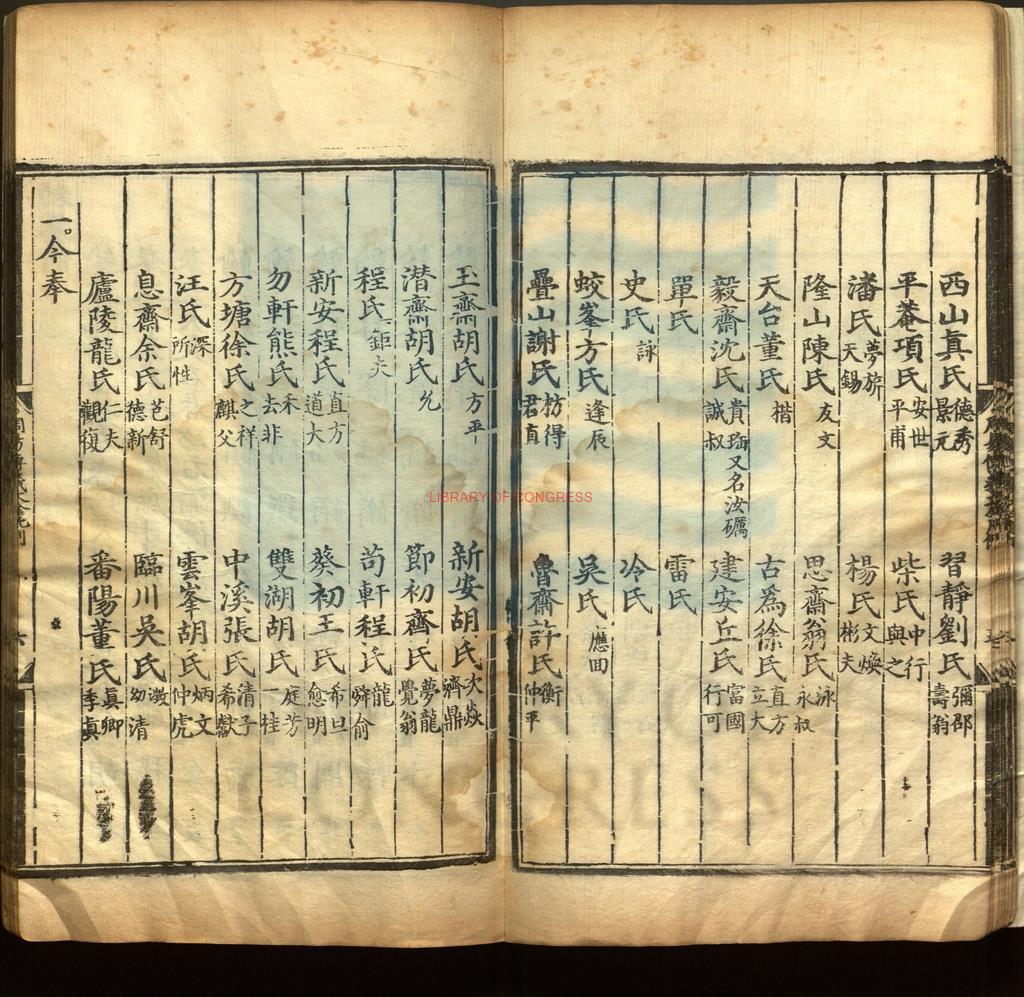 西山真氏 德秀 景元 習靜劉氏 彌邵 壽翁
平菴項氏 安世 平甫 柴氏 中行 與之
潘氏 夢旂 天錫 楊氏 文煥 彬夫
隆山陳氏 友文 思齋翁氏 泳 永叔
天台董氏 楷 古為徐氏 直方 立大
毅齋沈氏 貴珤 又名汝礪 誠叔 建安丘氏 富國 行可
單氏 雷氏
史氏 詠 冷氏
蛟峯方氏 逢辰 吳氏 應回
疊山謝氏 枋得 君直 魯齋許氏 衡 仲平
玉齋胡氏 方平 新安胡氏 次焱 濟鼎
潛齋胡氏 允 節初齊氏 夢龍 覺翁
程氏 鉅夫 苟軒程氏 龍 舜俞
新安程氏 直方 道大 葵初王氏 希旦 愈明
勿軒熊氏 禾 去非 雙湖胡氏 庭芳 一桂
方塘徐氏 之祥 麒父 中溪張氏 清子 希獻
汪氏 深 所性 雲峯胡氏 炳文 仲虎
息齋余氏 芑舒 德新 臨川吳氏 澂 幼清
廬陵龍氏 仁夫 觀復 番陽董氏 真卿 季真
一。今奉
LIBRARY OF CONGRESS